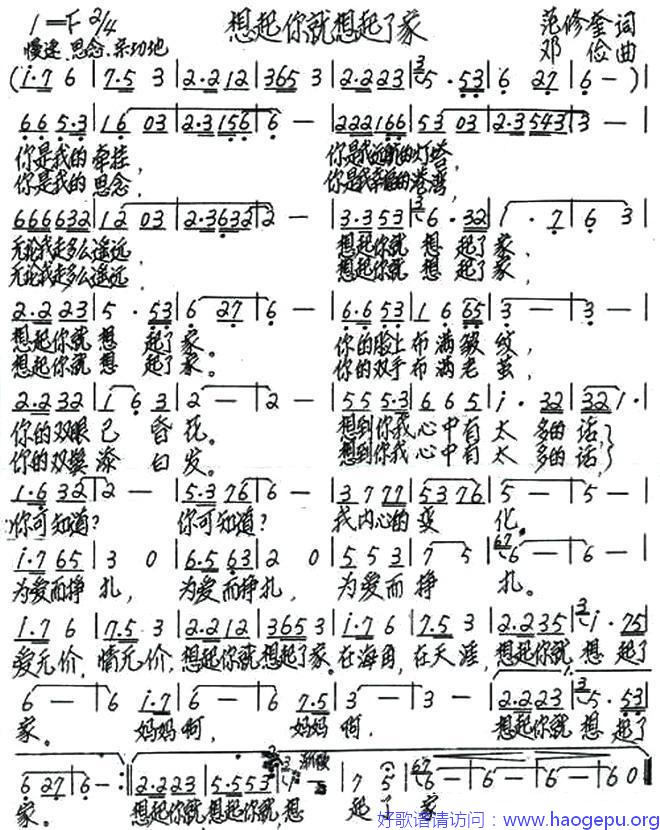 1=F 2/4 想起你就想起了家 范修奎词
慢速 思念 亲切地 邓 俭曲
(i·7 6 | 7·5 3 | 2·212 | 365 3 | 2·223 | 5·53 | 6 27 | 6 — ) |
6 6 5·3 | 16 03 | 2·3156 | 6 — | 222166 | 53 03 | 2·3543 | 3 — |
你是我的牵挂， 你是我远航的灯塔，
你是我的思念， 你是我幸福的港湾，
666632 | 12 03 | 2·3632 | 2 — | 3·353 | 6·32 | 1·7 | 6 3 |
无论我走多么遥远， 想起你就想起了家，
无论我走多么遥远， 想起你就想起了家，
2·223 | 5·53 | 6 27 | 6 — | 6·653 | 1 6 65 | 3 — | 3 — |
想起你就想起了家。 你的脸上布满皱纹，
想起你就想起了家。 你的双手布满老茧，
2·232 | 1 6 3 | 2 — | 2 — | 55 5·3 | 6 6 5 | i·32 | 32 1· |
你的双眼已昏花。 想到你我心中有太多的话，
你的双鬓添白发。 想到你我心中有太多的话，
1·6 32 | 2 — | 5·3 76 | 6 — | 3 7 77 | 53 76 | 5 — | 5 — |
你可知道？ 你可知道？ 我内心的变化。
i·7 65 | 3 0 | 6·5 63 | 2 0 | 5 5 3 | 7 5 | 6 — | 6 — |
为爱而挣扎， 为爱而挣扎， 为爱而挣扎。
i·7 6 | 7·5 3 | 2·212 | 365 3 | i·7 6 | 7·5 3 | 2·235 | i·75 |
爱无价，情无价，想起你就想起了家。在海角，在天涯，想起你就想起了
6 — | 6 i·7 | 6 — | 6 7·5 | 3 — | 3 — | 2·223 | 5·53 |
家。 妈妈啊， 妈妈啊， 想起你就想起了
6 27 | 6 — :‖ 2·223 | 5·553 | i — | 7 5 | 6 — | 6 — | 6 — | 6 0 ‖
家。 想起你就想起你就，想起了家
好歌谱请访问：www.haogepu.org